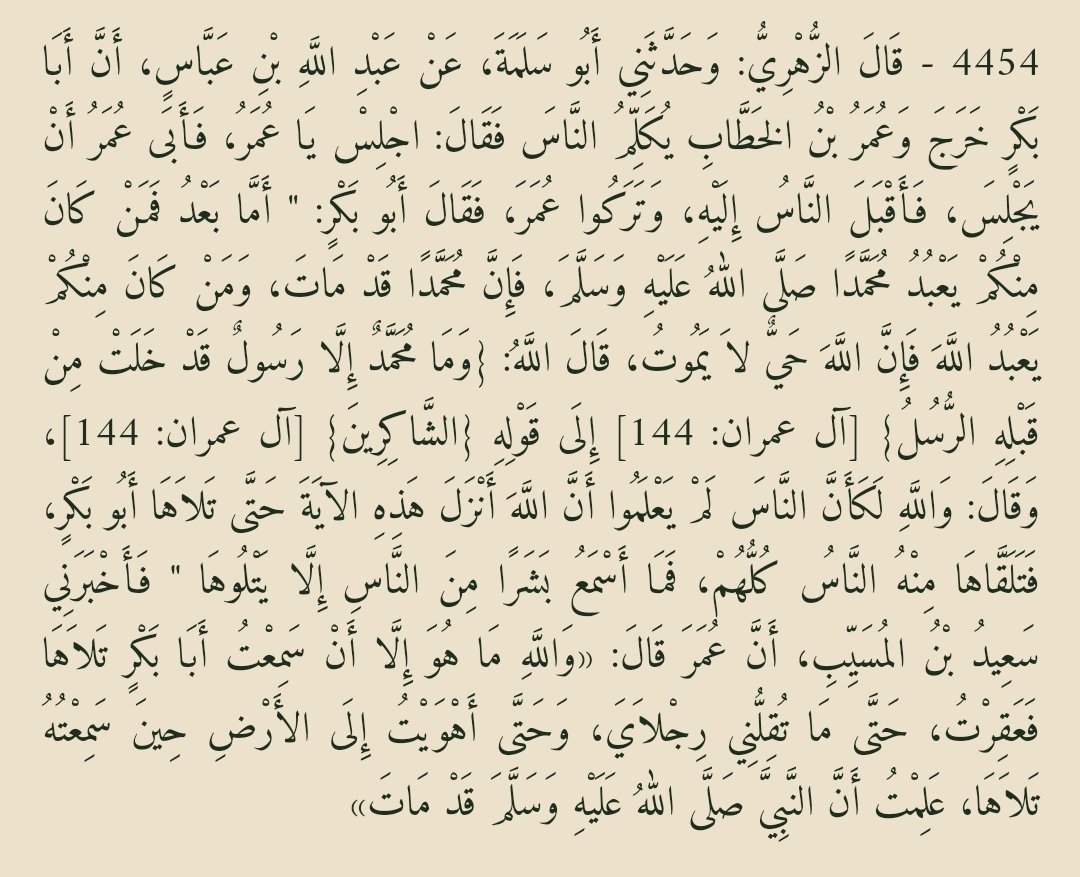 4454 - قَالَ الزُّهْرِيُّ: وَحَدَّثَنِي أَبُو سَلَمَةَ، عَنْ عَبْدِ اللَّهِ بْنِ عَبَّاسٍ، أَنَّ أَبَا
بَكْرٍ خَرَجَ وَعُمَرُ بْنُ الخَطَّابِ يُكَلِّمُ النَّاسَ فَقَالَ: اجْلِسْ يَا عُمَرُ، فَأَبَى عُمَرُ أَنْ
يَجْلِسَ، فَأَقْبَلَ النَّاسُ إِلَيْهِ، وَتَرَكُوا عُمَرَ، فَقَالَ أَبُو بَكْرٍ: " أَمَّا بَعْدُ فَمَنْ كَانَ
مِنْكُمْ يَعْبُدُ مُحَمَّدًا صَلَّى اللهُ عَلَيْهِ وَسَلَّمَ، فَإِنَّ مُحَمَّدًا قَدْ مَاتَ، وَمَنْ كَانَ مِنْكُمْ
يَعْبُدُ اللَّهَ فَإِنَّ اللَّهَ حَيٌّ لاَ يَمُوتُ، قَالَ اللَّهُ: {وَمَا مُحَمَّدٌ إِلَّا رَسُولٌ قَدْ خَلَتْ مِنْ
قَبْلِهِ الرُّسُلُ} [آل عمران: 144] إِلَى قَوْلِهِ {الشَّاكِرِينَ} [آل عمران: 144]،
وَقَالَ: وَاللَّهِ لَكَأَنَّ النَّاسَ لَمْ يَعْلَمُوا أَنَّ اللَّهَ أَنْزَلَ هَذِهِ الآيَةَ حَتَّى تَلاَهَا أَبُو بَكْرٍ،
فَتَلَقَّاهَا مِنْهُ النَّاسُ كُلُّهُمْ، فَمَا أَسْمَعُ بَشَرًا مِنَ النَّاسِ إِلَّا يَتْلُوهَا " فَأَخْبَرَنِي
سَعِيدُ بْنُ المُسَيِّبِ، أَنَّ عُمَرَ قَالَ: «وَاللَّهِ مَا هُوَ إِلَّا أَنْ سَمِعْتُ أَبَا بَكْرٍ تَلاَهَا
فَعَقِرْتُ، حَتَّى مَا تُقِلُّنِي رِجْلاَيَ، وَحَتَّى أَهْوَيْتُ إِلَى الأَرْضِ حِينَ سَمِعْتُهُ
تَلاَهَا، عَلِمْتُ أَنَّ النَّبِيَّ صَلَّى اللهُ عَلَيْهِ وَسَلَّمَ قَدْ مَاتَ»